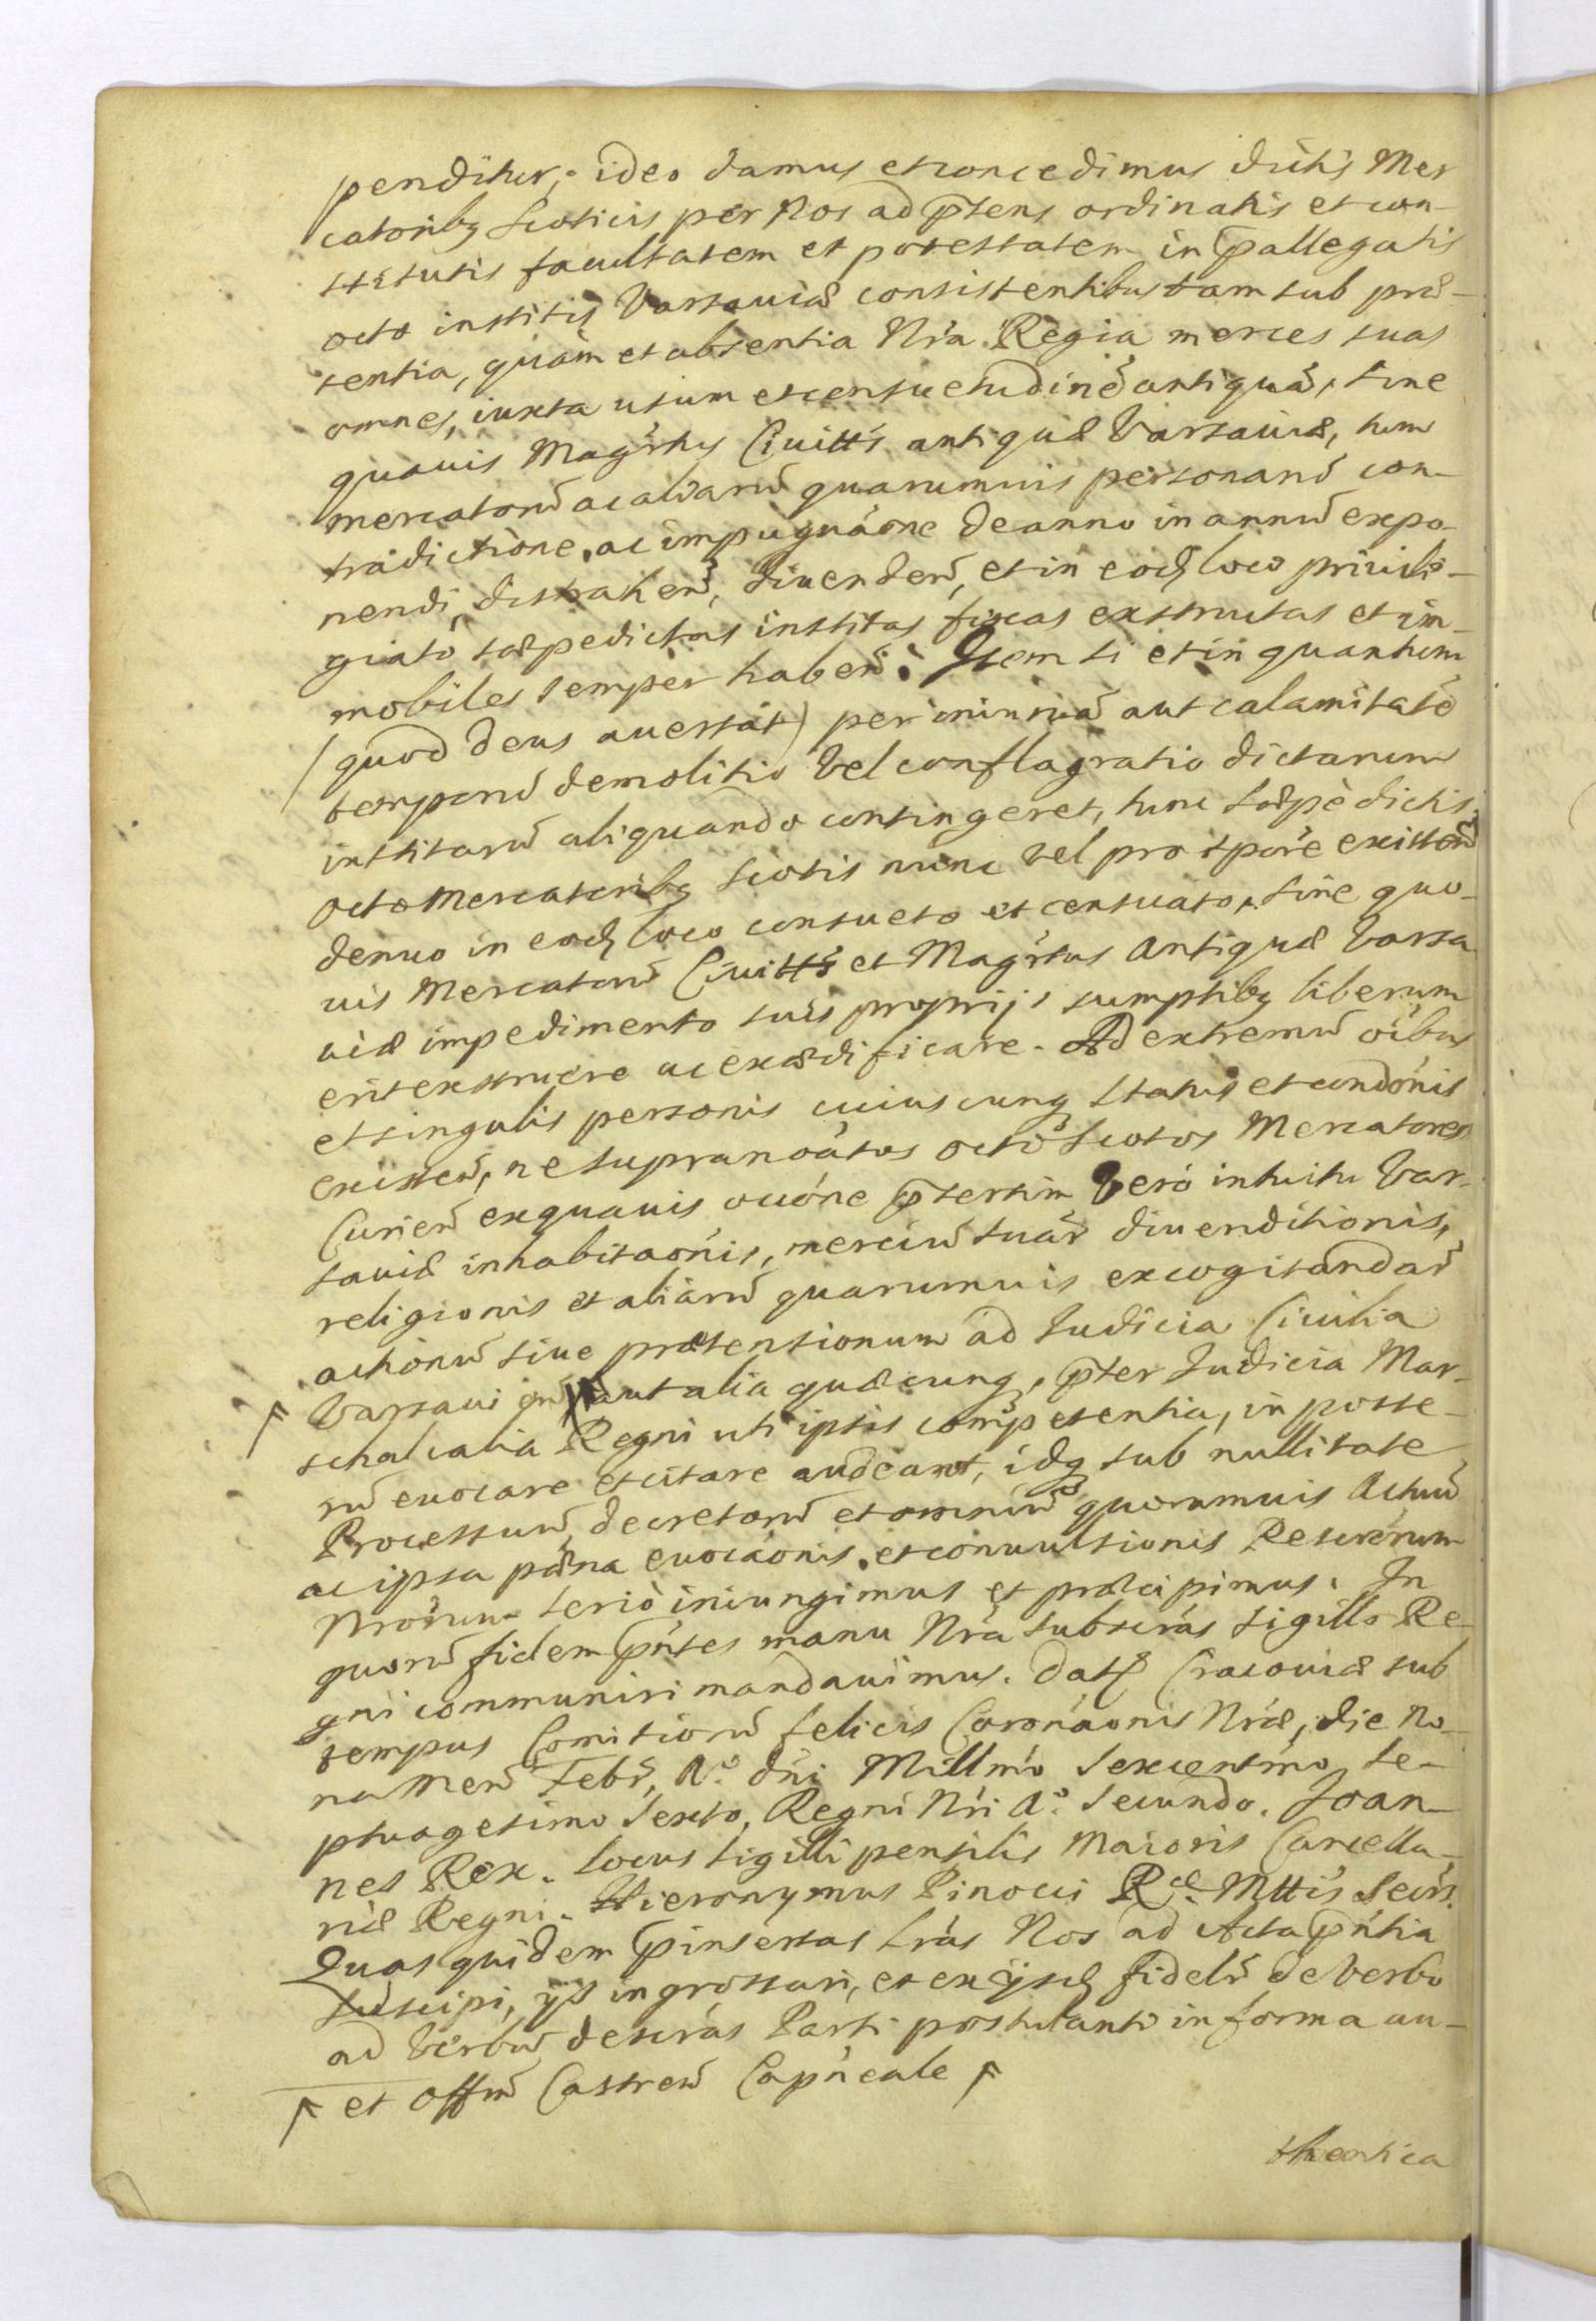 penditur; ideo damus et concedimus dictis Mer
catoribꝫ Scoticis per Nos ad p̅sens ordinatis et con-
stitutis facultatem et potestatem in p̅allegatis
octo institis Varsauiæ consistentibus tam sub præ-
sentia, quàm et absentia Nr̃a Regia merces suas
omnes, iuxta usum et consuetudinē antiquã, sine
quauis Magr̃tus Ciuitt̃s antiquæ Varsauiæ, tum
mercatorũ ac aliarũ quarumuis personarũ con-
tradictione, ac impugnãone de anno in annũ expo-
nendi, distrahen̄, diuenden̄, et in eodꝫ loco priuile-
giato sæpedictas institas fixas exstructas et im-
mobiles semper haben̄. Item si et in quantum
(quod Deus auertat) per iniuriã aut calamitatẽ
temporũ demolitio vel conflagratio dictarum
institarũ aliquando contingeret, tunc sæpèdictis
octo Mercatoribꝫ Scotis nunc vel pro tp̃ore existen̄
denuo in eodꝫ loco consueto et censuato, sine quo-
uis Mercatorũ Ciuitt̃s et Magr̃tus Antiquæ Varsa
uiæ impedimento suis proprijs sumptibꝫ liberum
erit exstruere ac exædificare. Ad extremũ oĩbus
et singulis personis cuiuscunqꝫ status et condõnis
existen̄, ne supranoãtos octo Scotos Mercatores
Curien̄ ex quauis occõne p̅sertim verò intuitu Var-
sauiæ inhabitaõnis, merciũ suar̃ diuenditionis,
religionis et aliarũ quarumuis excogitandar̃
actionũ siue prætensionum ad Iudicia Ciuilia
↑ Varsauien̄ ↑ aut alia quæcunqꝫ, p̅ter Iudicia Mar-
schalcalia Regni uti ipsis competentia, in poste-
rũ euocare et citare audeant, idqꝫ sub nullitate
Processuũ, decretorũ et omniũ quorumuis Actuũ
ac ipsa pœna euocãonis, et conuulsionis Rescr̃orum
Nrõrum seriò iniungimus et præcipimus. In
quorũ fidem p̅ntes manu Nr̃a subscr̃as sigillo Re-
gni communiri mandauimus. Datꝫ Cracouiæ sub
tempus Comitiorũ felicis Coronãonis Nr̃æ, die No-
na Men̄ Febr̃, A.º Dñi Millm̃o Sexcentm̃o se-
ptuagesimo Sexto, Regni Nr̃i A.º Secundo. Joan-
nes Rex. Locus Sigilli pensilis Maioris Cancella-
riæ Regni. Hieronymus Pinocci R.æ Mttis Secr̃s.
Quas quidem p̅insertas Lr̃as Nos ad Acta p̅ntia
suscipi, ijs ingrossari, et ex ijsdꝫ fidelr̃ de verbo
ad verbũ descr̃as Parti postulanti in forma au-
↑ et Offiũ Castren̄ Capñeale ↑
thentica